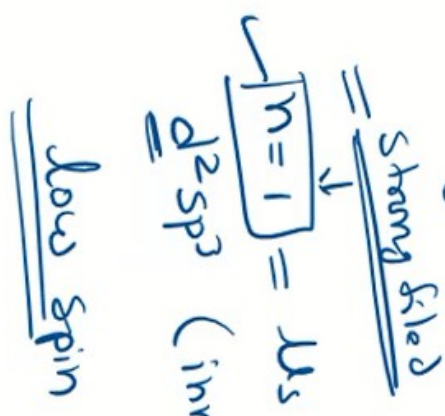 = Strong filed
↓
✓ n = 1 = μs
d²sp³ (inn
low spin